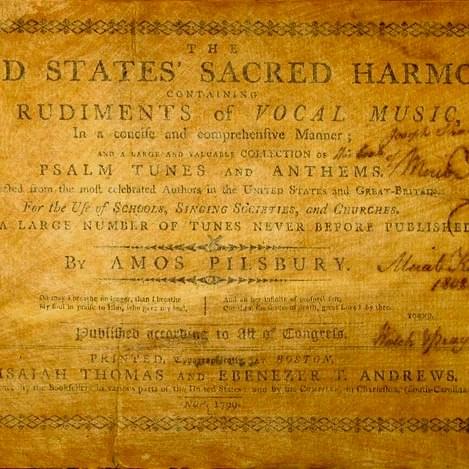 THE
D STATES' SACRED HARMO
CONTAINING
RUDIMENTS of VOCAL MUSIC,
In a concise and comprehensive Manner;
AND A LARGE AND VALUABLE COLLECTION OF
PSALM TUNES AND ANTHEMS.
from the most celebrated Authors in the UNITED STATES and GREAT-BRITAIN.
For the Use of SCHOOLS, SINGING SOCIETIES, and CHURCHES.
A LARGE NUMBER OF TUNES NEVER BEFORE PUBLISHED
BY AMOS PILSBURY.
no longer, than I breathe
My soul in praise to Him, who gave my
And on her infinite of
great Lord
Published according to Act of Congress.
PRINTED, Typographically, AT BOSTON,
ISAIAH THOMAS AND EBENEZER T. ANDREWS.
by the Booksellers in various parts of the United States; and by the COMPILER, in Charleston, (South-Carolina.
Nov. 1799.
Joseph
this book